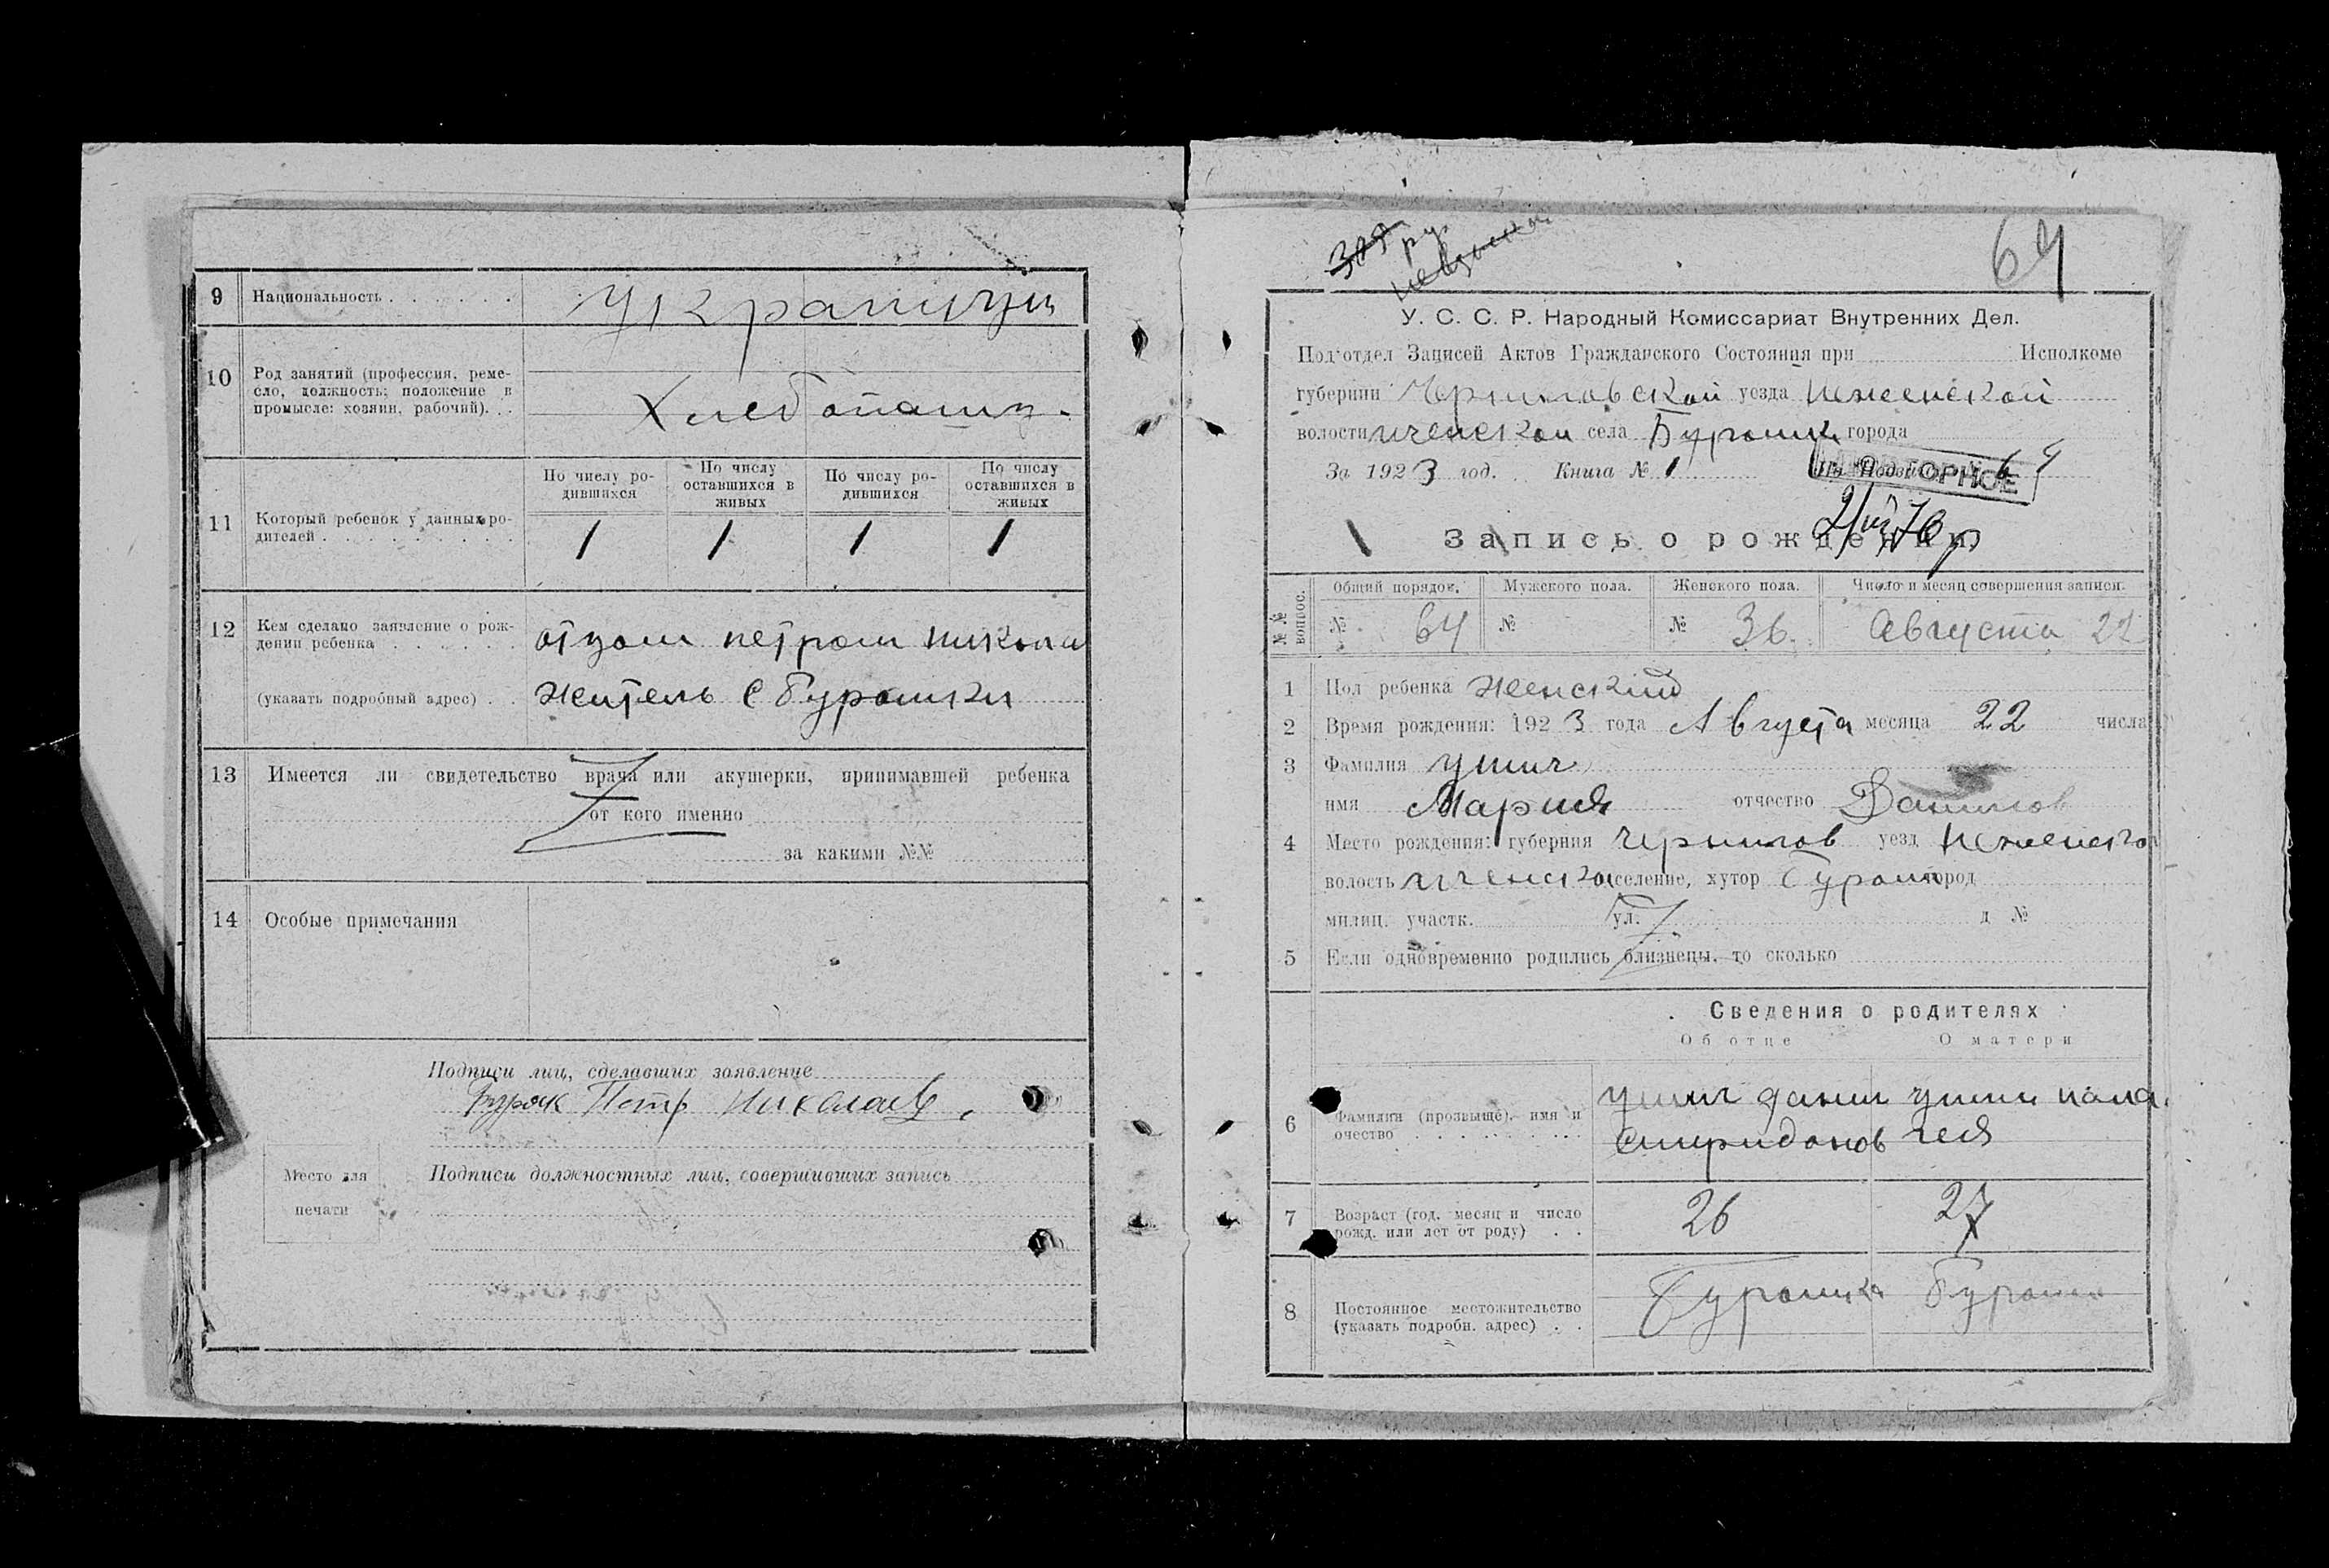 9 Национальность . . . . . . украинцы
10 Род занятий (профессия, реме-
сло, должность; положение в
промысле: хозяин, рабочий). . .
Хлебопашц.
По числу ро- По числу По числу ро- По числу
дившихся оставшихся в дившихся оставшихся в
живых живых
11 Который ребенок у данных ро-
дителей . . . . . . . . .
1 1 1 1
12 Кем сделано заявление о рож-
дении ребенка . . . . . . отцом петром никола
(указать подробный адрес) . . житель с бурошки
13 Имеется ли свидетельство врача или акушерки, принимавшей ребенка
от кого именно
за какими №№
14 Особые примечания
Подписи лиц, сделавших заявление
Буряк Петр Николаев
Место для
печати
Подписи должностных лиц, совершивших запись
64
У. С. С. Р. Народный Комиссариат Внутренних Дел.
Под'отдел Записей Актов Гражданского Состояния при Исполкоме
губернии Черниговской уезда неженской
волости иченской села города
За 1923 год. Книга № 1 64
ПОВТОРНОЕ
Запись о рождении
№№ вопрос. Общий порядок. Мужского пола. Женского пола. Число и месяц совершения записи.
№ 64 № № 36. Августа 22
1 Пол ребенка женский
2 Время рождения: 1923 года Августа месяца 22 числа
3 Фамилия
имя Мария отчество Данилов
4 Место рождения: губерния чернигов уезд неженско
волость иченско селение, хутор город
милиц. участк. ул. д №
5 Если одновременно родились близнецы, то сколько
Сведения о родителях
Об отце О матери
6 Фамилия (прозвище), имя и
очество . . . . . . . . .
данил пала.
Спиридонов гея
7 Возраст (год, месяц и число
рожд. или лет от роду) . .
26 27
8 Постоянное местожительство
(указать подробн. адрес) . .